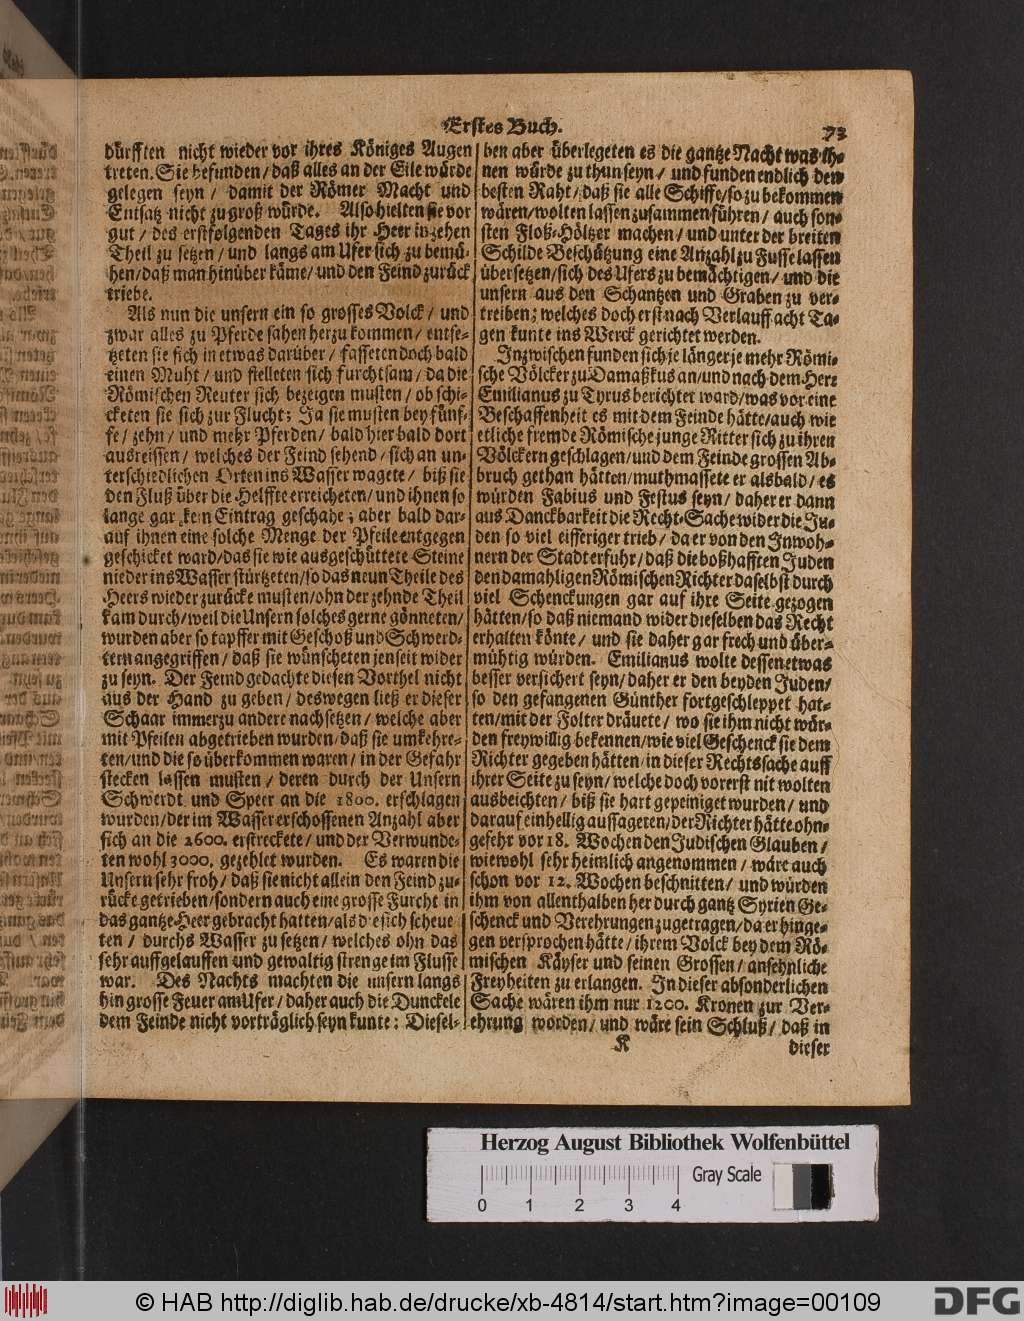 Erstes Buch.
73
dürfften nicht wieder vor ihres Königes Augen
treten. Sie befunden/ daß alles an der Eile würde
gelegen seyn/ damit der Römer Macht und
Entsatz nicht zu groß würde. Also hielten sie vor
gut/ des erstfolgenden Tages ihr Heer in zehen
Theil zu setzen/ und langs am Ufer sich zu bemü-
hen/ daß man hinüber käme/ und den Feind zurück
triebe.
Als nun die unsern ein so grosses Volck/ und
zwar alles zu Pferde sahen herzu kommen/ entse-
tzeten sie sich in etwas darüber/ fasseten doch bald
einen Muht/ und stelleten sich furchtsam/ da die
Römischen Reuter sich bezeigen musten/ ob schi-
cketen sie sich zur Flucht; Ja sie musten bey fünf-
fe/ zehn/ und mehr Pferden/ bald hier bald dort
ausreissen/ welches der Feind sehend/ sich an un-
terschiedlichen Orten ins Wasser wagete/ biß sie
den Fluß über die Helffte erreicheten/ und ihnen so
lange gar kein Eintrag geschahe; aber bald dar-
auf ihnen eine solche Menge der Pfeile entgegen
geschicket ward/ das sie wie ausgeschüttete Steine
nieder ins Wasser stürtzeten/ so das neun Theile des
Heers wieder zurücke musten/ ohn der zehnde Theil
kam durch/ weil die Unsern solches gerne gönneten/
wurden aber so tapffer mit Geschoß und Schwerd-
tern angegriffen/ daß sie wünscheten jenseit wider
zu seyn. Der Feind gedachte diesen Vorthel nicht
aus der Hand zu geben/ deswegen ließ er dieser
Schaar immerzu andere nachsetzen/ welche aber
mit Pfeilen abgetrieben wurden/ daß sie umkehre-
ten/ und die so überkommen waren/ in der Gefahr
stecken lassen musten/ deren durch der Unsern
Schwerdt und Speer an die 1800. erschlagen
wurden/ der im Wasser erschossenen Anzahl aber
sich an die 2600. erstreckete/ und der Verwunde-
ten wohl 3000. gezehlet wurden. Es waren die
Unsern sehr froh/ daß sie nicht allein den Feind zu-
rücke getrieben/ sondern auch eine grosse Furcht in
das gantze Heer gebracht hatten/ als die sich scheue-
ten/ durchs Wasser zu setzen/ welches ohn das
sehr auffgelauffen und gewaltig strenge im Flusse
war. Des Nachts machten die unsern langs
hin grosse Feuer am Ufer/ daher auch die Dunckele
dem Feinde nicht vorträglich seyn kunte: Diesel-
ben aber überlegeten es die gantze Nacht was ih-
nen würde zu thun seyn/ und funden endlich den
besten Raht/ daß sie alle Schiffe/ so zu bekommen
wären/ wolten lassen zusammen führen/ auch son-
sten Floß-Höltzer machen/ und unter der breiten
Schilde Beschützung eine Anzahl zu Fusse lassen
übersetzen/ sich des Ufers zu bemächtigen/ und die
unsern aus den Schantzen und Graben zu ver-
treiben; welches doch erst nach Verlauff acht Ta-
gen kunte ins Werck gerichtet werden.
Inzwischen funden sich je länger je mehr Römi-
sche Völcker zu Damaßkus an/ und nach dem Herr
Emilianus zu Tyrus berichtet ward/ was vor eine
Beschaffenheit es mit dem Feinde hätte/ auch wie
etliche fremde Römische junge Ritter sich zu ihren
Völckern geschlagen/ und dem Feinde grossen Ab-
bruch gethan hätten/ muthmassete er alsbald/ es
würden Fabius und Festus seyn/ daher er dann
aus Danckbarkeit die Recht-Sache wider die Ju-
den so viel eifferiger trieb/ da er von den Inwoh-
nern der Stadt erfuhr/ daß die boßhafften Juden
den damahligen Römischen Richter daselbst durch
viel Schenckungen gar auf ihre Seite gezogen
hätten/ so daß niemand wider dieselben das Recht
erhalten könte/ und sie daher gar frech und über-
mühtig würden. Emilianus wolte dessen etwas
besser versichert seyn/ daher er den beyden Juden/
so den gefangenen Günther fortgeschleppet hat-
ten/ mit der Folter dräuete/ wo sie ihm nicht wür-
den freywillig bekennen/ wie viel Geschenck sie dem
Richter gegeben hätten/ in dieser Rechtssache auff
ihrer Seite zu seyn/ welche doch vorerst nit wolten
ausbeichten/ biß sie hart gepeiniget wurden/ und
darauf einhellig aussageten/ der Richter hätte ohn-
gefehr vor 18. Wochen den Jüdischen Glauben/
wiewohl sehr heimlich angenommen/ wäre auch
schon vor 12. Wochen beschnitten/ und würden
ihm von allenthalben her durch gantz Syrien Ge-
schenck und Verehrungen zugetragen/ da er hinge-
gen versprochen hätte/ ihrem Volck bey dem Rö-
mischen Käyser und seinen Grossen/ ansehnliche
Freyheiten zu erlangen. In dieser absonderlichen
Sache wären ihm nur 1200. Kronen zur Ver-
ehrung worden/ und wäre sein Schluß/ daß in
K
dieser
Herzog August Bibliothek Wolfenbüttel
Gray Scale
0 1 2 3 4
© HAB http://diglib.hab.de/drucke/xb-4814/start.htm?image=00109
DFG